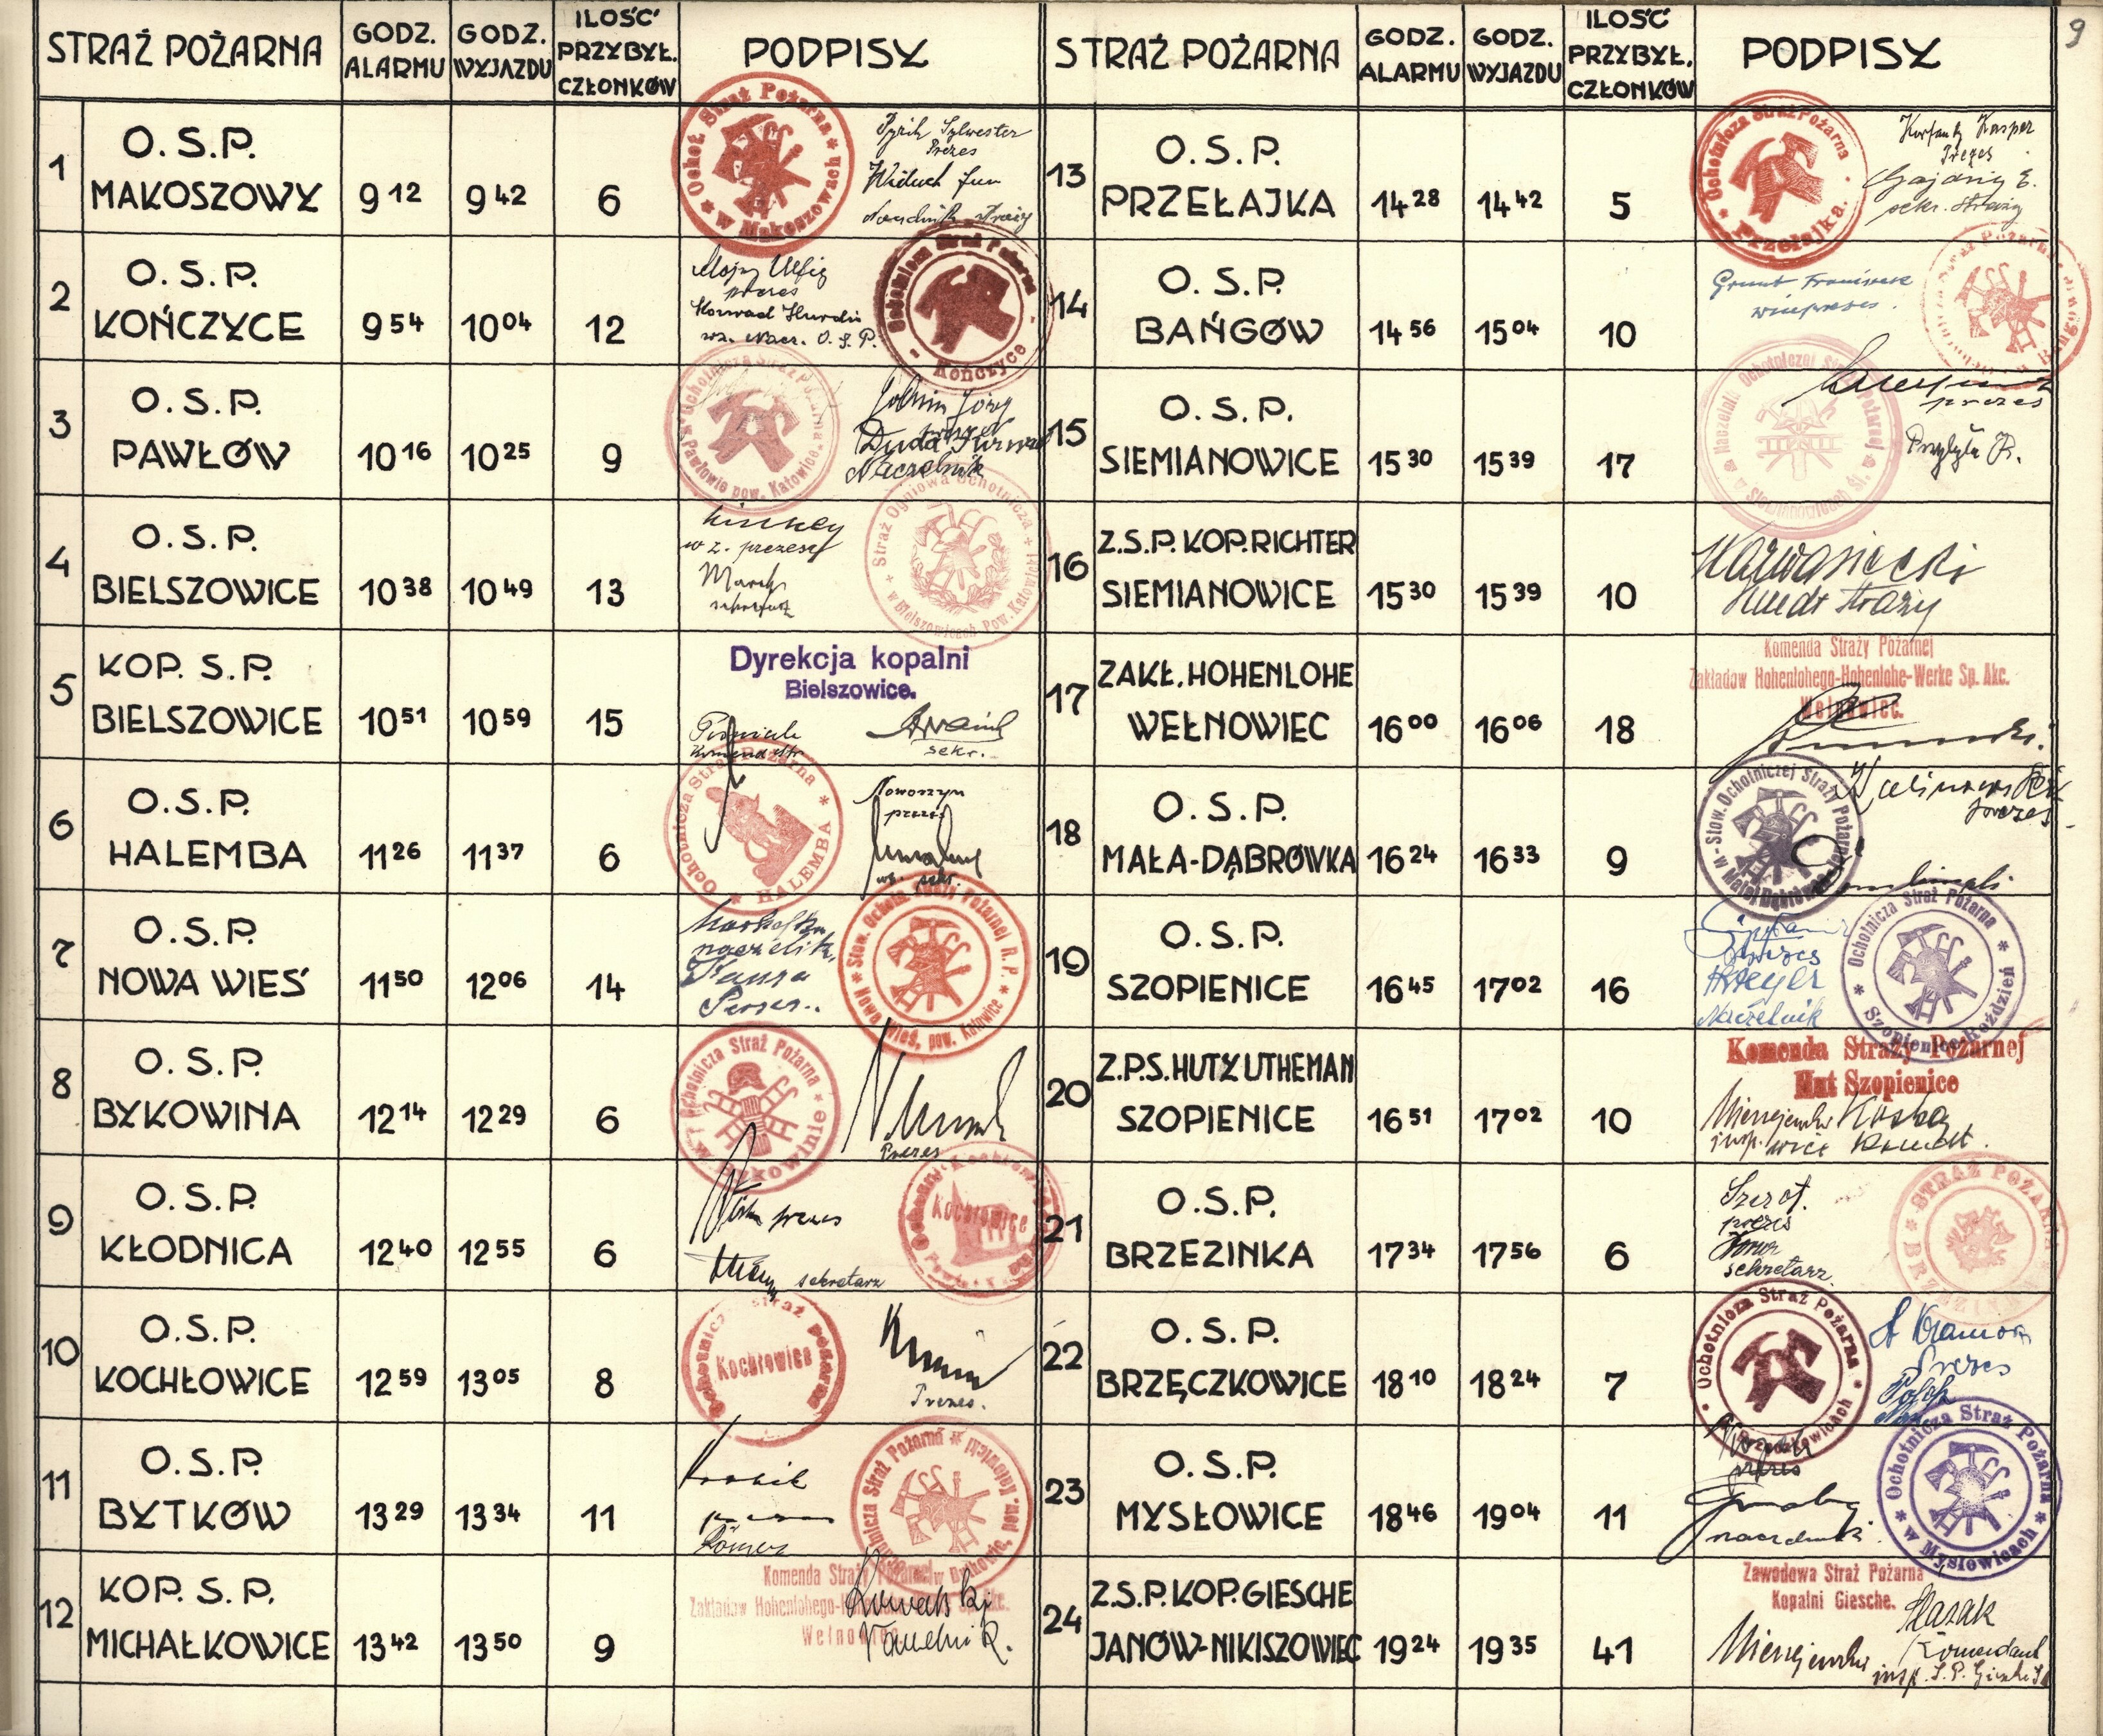 9
STRAŻ POŻARNA
GODZ. ALARMU
GODZ. WYJAZDU
ILOŚĆ PRZYBYŁ. CZŁONKÓW
PODPISY
1
O.S.P.
MAKOSZOWY
9 12
9 42
6
Ochot. Straż Pożarna w Makoszowach
Sylwester
Prezes
2
O.S.P.
KOŃCZYCE
9 54
10 04
12
prezes
Konrad
O.S.P.
Ochotnicza Straż Pożarna
Kończyce
3
O.S.P.
PAWŁÓW
10 16
10 25
9
Pawłowie pow. Katowice
Duda
Naczelnik
4
O.S.P.
BIELSZOWICE
10 38
10 49
13
w z. prezesa
Straż Ogniowa Ochotnicza
w Bielszowicach Pow. Katowice
5
KOP. S.P.
BIELSZOWICE
10 51
10 59
15
Dyrekcja kopalni
Bielszowice.
sekr.
6
O.S.P.
HALEMBA
11 26
11 37
6
Ochotnicza Straż Pożarna
HALEMBA
prezes
7
O.S.P.
NOWA WIEŚ
11 50
12 06
14
Stow. Ochotn. Straży Pożarnej R.P.
Nowa Wieś, pow. Katowice
8
O.S.P.
BYKOWINA
12 14
12 29
6
Ochotnicza Straż Pożarna
w Bykowinie
Prezes
9
O.S.P.
KŁODNICA
12 40
12 55
6
prezes
sekretarz
Kochłowice
10
O.S.P.
KOCHŁOWICE
12 59
13 05
8
Ochotnicza straż pożarna
Kochłowice
Prezes.
11
O.S.P.
BYTKÓW
13 29
13 34
11
Straż Pożarna
12
KOP. S.P.
MICHAŁKOWICE
13 42
13 50
9
Komenda Straży Pożarnej
Zakładów Hohenlohego-
Wełnowiec
STRAŻ POŻARNA
GODZ. ALARMU
GODZ. WYJAZDU
ILOŚĆ PRZYBYŁ. CZŁONKÓW
PODPISY
13
O.S.P.
PRZEŁAJKA
14 28
14 42
5
Ochotnicza Straż Pożarna
Przełajka.
Kasper
Prezes
sekr. straży
14
O.S.P.
BAŃGÓW
14 56
15 04
10
wiceprezes.
15
O.S.P.
SIEMIANOWICE
15 30
15 39
17
Naczelnik Ochotniczej Straży Pożarnej
w Siemianowicach Śl.
prezes
16
Z.S.P. KOP. RICHTER
SIEMIANOWICE
15 30
15 39
10
straży
17
ZAKŁ. HOHENLOHE
WEŁNOWIEC
16 00
16 06
18
Komenda Straży Pożarnej
Zakładów Hohenlohego-Hohenlohe-Werke Sp. Akc.
Wełnowiec.
18
O.S.P.
MAŁA-DĄBRÓWKA
16 24
16 33
9
Stow. Ochotniczej Straży Pożarnej
prezes
19
O.S.P.
SZOPIENICE
16 45
17 02
16
Prezes
Naczelnik
Ochotnicza Straż Pożarna
Szopienice-Roździeń
20
Z.P.S. HUTY UTHEMAN
SZOPIENICE
16 51
17 02
10
Komenda Straży Pożarnej
Hut Szopienice
insp.
21
O.S.P.
BRZEZINKA
17 34
17 56
6
prezes
sekretarz.
STRAŻ POŻARNA
BRZEZINKA
22
O.S.P.
BRZĘCZKOWICE
18 10
18 24
7
Ochotnicza Straż Pożarna
w Brzęczkowicach
Prezes
23
O.S.P.
MYSŁOWICE
18 46
19 04
11
prezes
Ochotnicza Straż Pożarna
w Mysłowicach
24
Z.S.P. KOP. GIESCHE
JANÓW-NIKISZOWIEC
19 24
19 35
41
Zawodowa Straż Pożarna
Kopalni Giesche.
Komendant
insp. S.P.